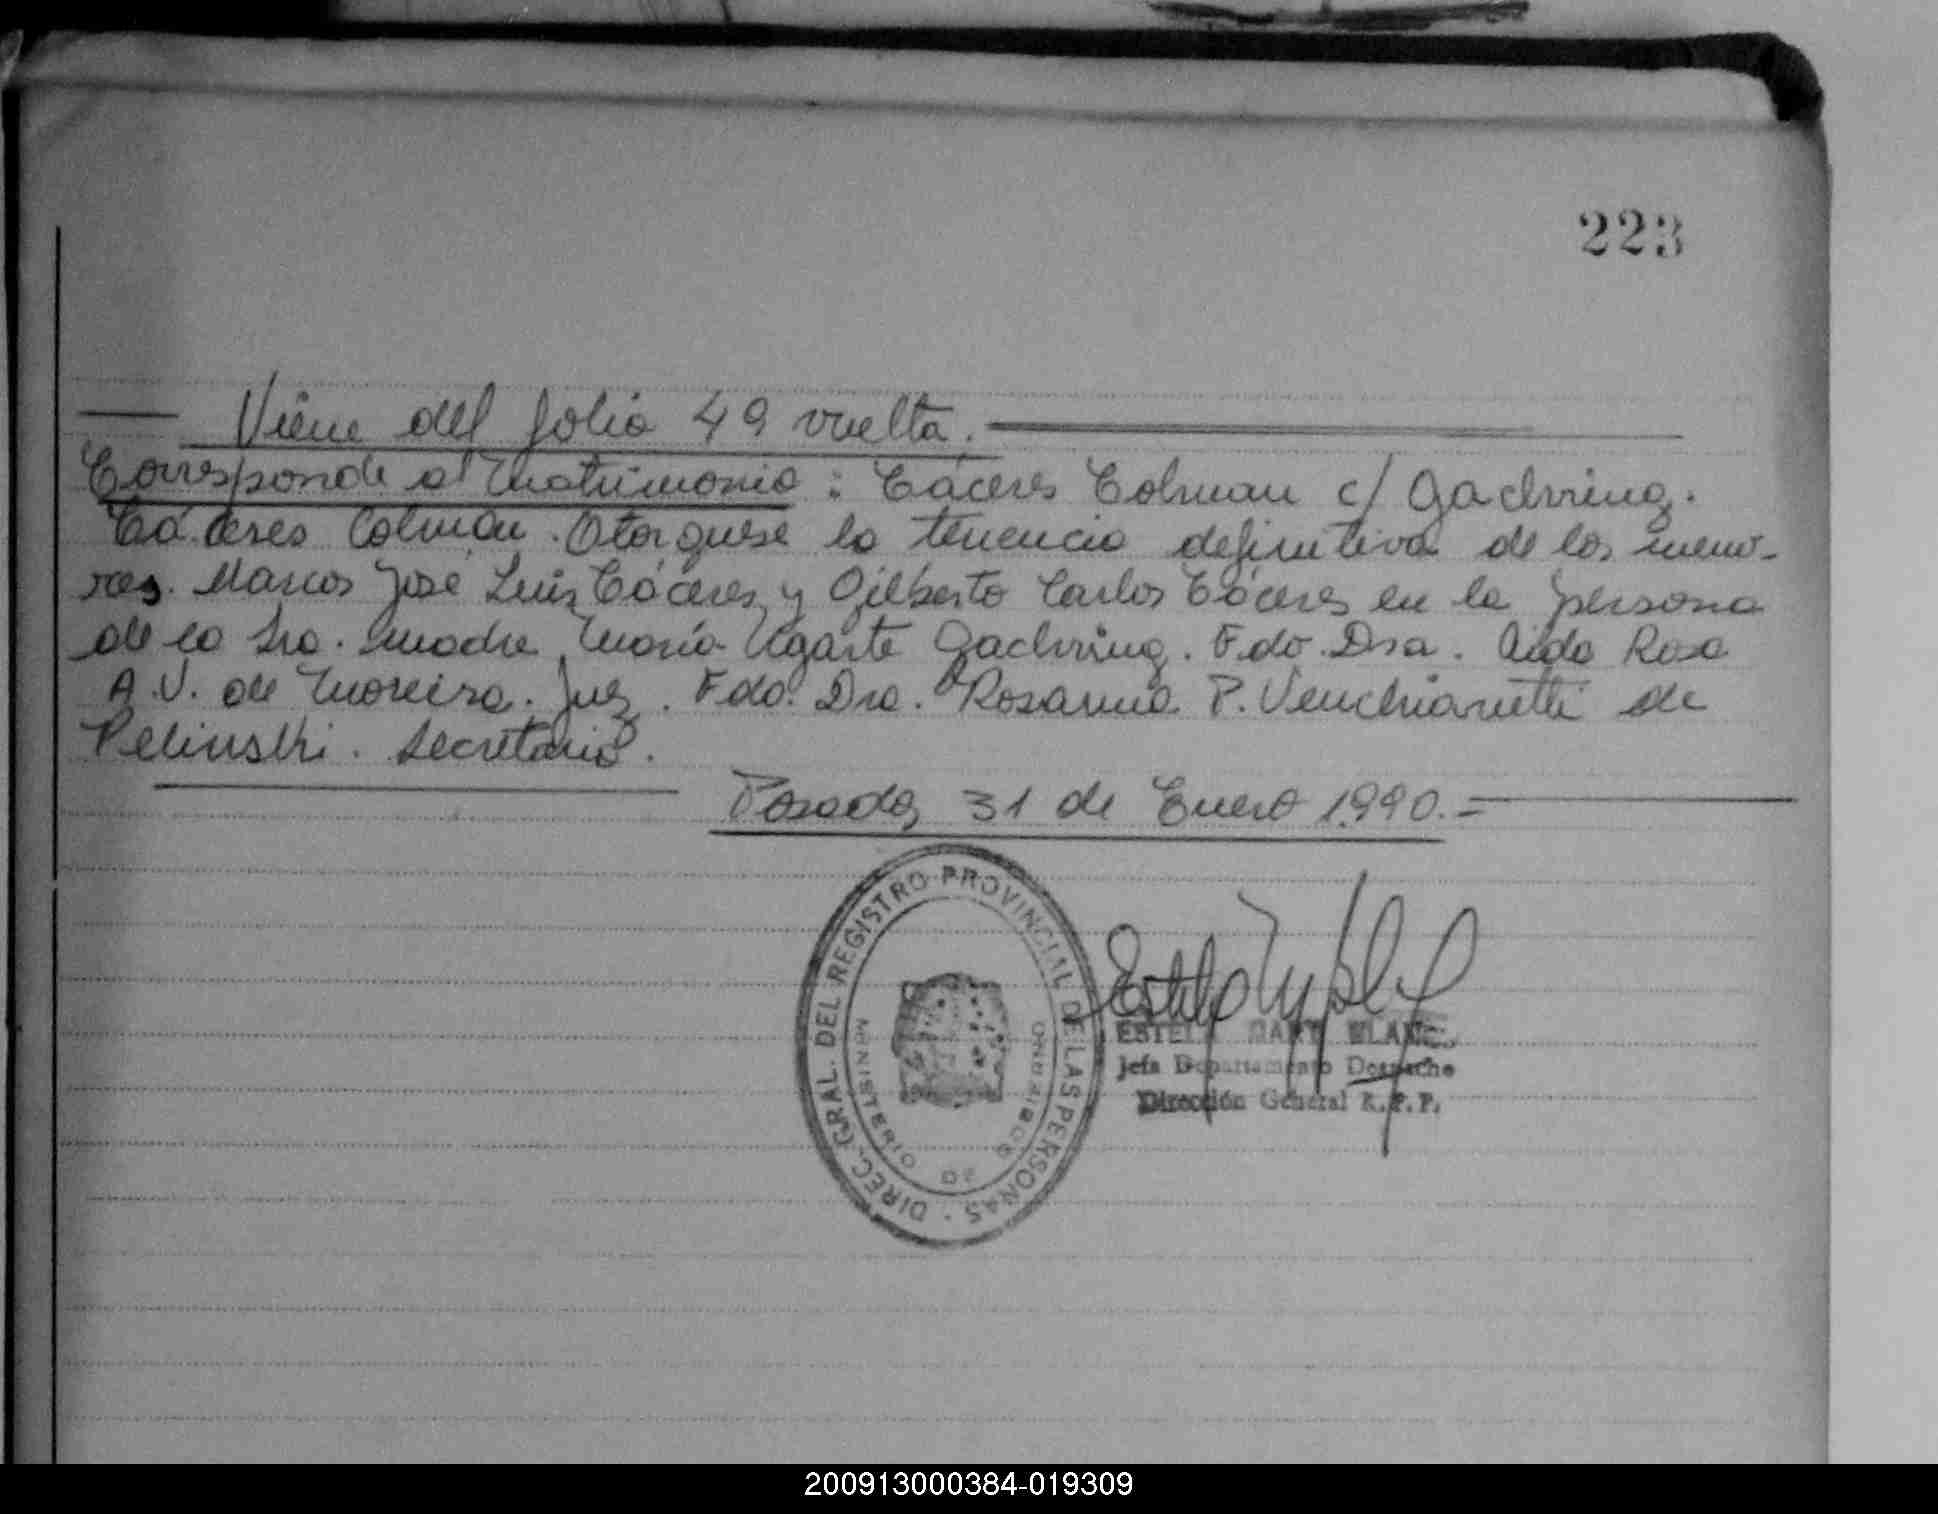 223
Viene del folio 49 vuelta.
Corresponde al Matrimonio : Cáceres Colman c/ Gachring.
Cáceres Colmán. Otorguese la tenencia definitiva de los meno-
res. Marcos José Luis Cáceres y Gilberto Carlos Cáceres en la persona
de la Sra. madre María Ugarte Gachring. Fdo. Dra. Aida Rosa
A.V. de Moreira. Juez. Fdo. Dra. Rosanna P. Venchiarutti de
Pelinski. Secretaria.
Posadas, 31 de Enero 1.990.=
DIREC. GRAL. DEL REGISTRO PROVINCIAL DE LAS PERSONAS
MINISTERIO DE GOBIERNO
ESTELA
Jefa Departamento Despacho
Dirección General R.P.P.
200913000384-019309